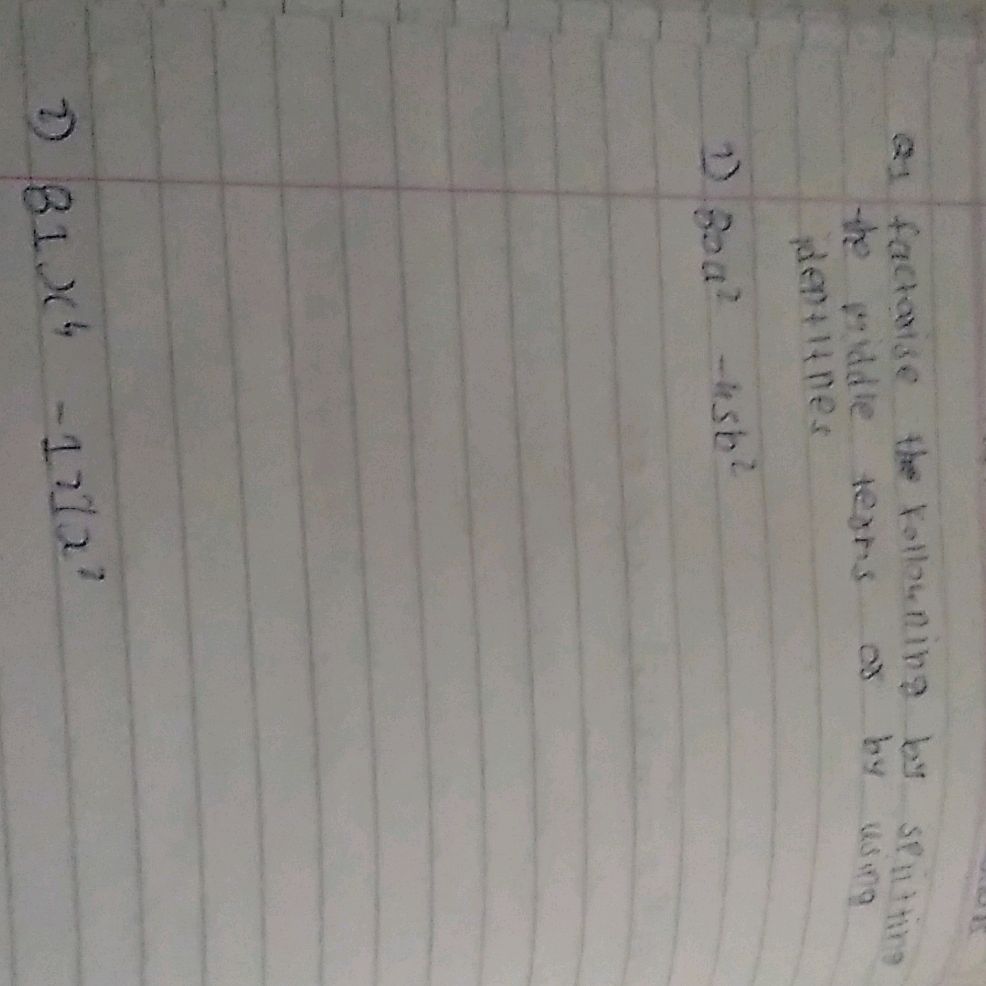 Q1 factorise the following by splitting
the middle terms or by using
identities
1) 80a² -45b²
2) 81x⁴ -121x²